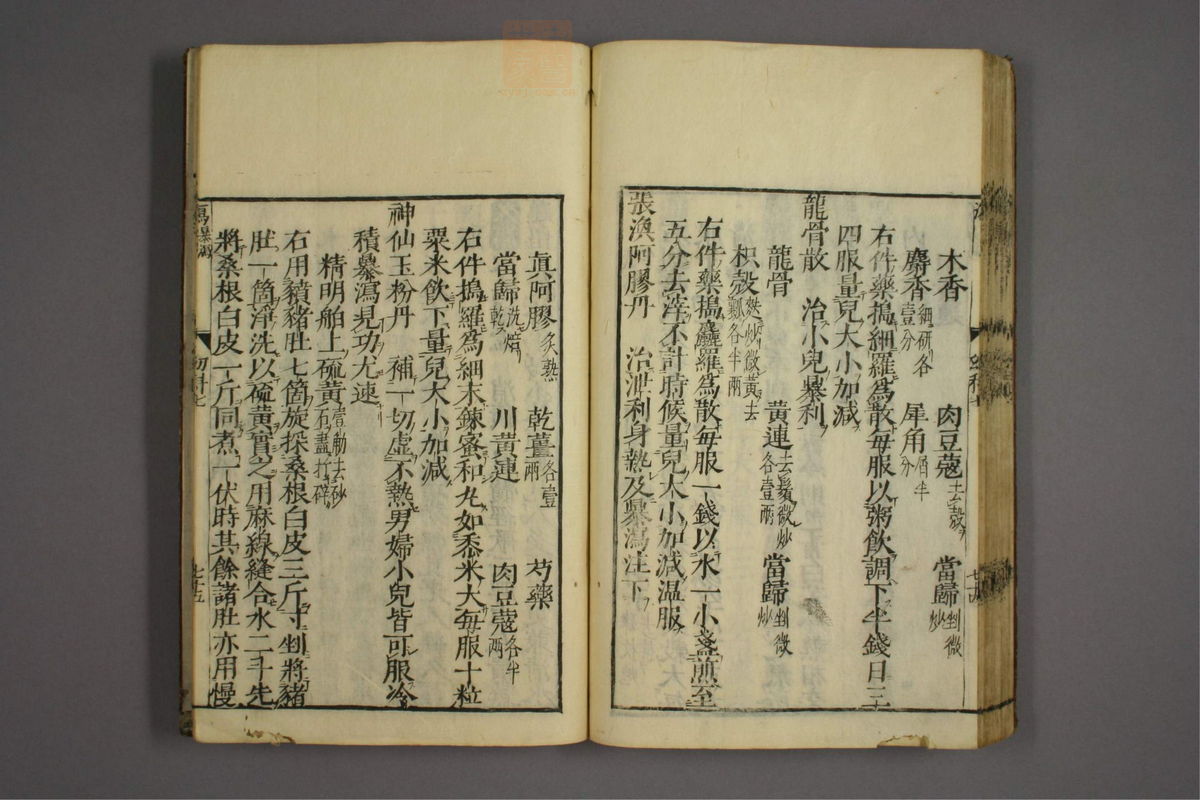 木香　肉豆蔻去殼　當歸剉微炒
麝香細研各壹分　犀角屑半分
右件藥搗細羅爲散每服以粥飲調下半錢日三
四服量兒大小加減
龍骨散　治小兒暴利
龍骨　黃連去鬚微炒各壹兩　當歸剉微炒
枳殼麩炒微黃去瓤各半兩
右件藥搗麤羅爲散每服一錢以水一小盞煎至
五分去滓不計時候量兒大小加減溫服
張渙阿膠丹　治泄利身熱及暴瀉注下
眞阿膠炙熟　乾薑各壹兩　芍藥
當歸洗焙乾　川黃連　肉豆蔻各半兩
右件搗羅爲細末鍊蜜和丸如黍米大每服十粒
粟米飲下量兒大小加減
神仙玉粉丹　補一切虛不熱男婦小兒皆可服冷
積暴瀉見功尤速
精明舶上硫黃壹觔去砂石盡打碎
右用獖豬肚七箇旋採桑根白皮三斤寸剉將豬
肚一箇淨洗以硫黃實之用麻線縫合水二斗先
將桑根白皮一斤同煮一伏時其餘諸肚亦用慢
幼科七
七十五